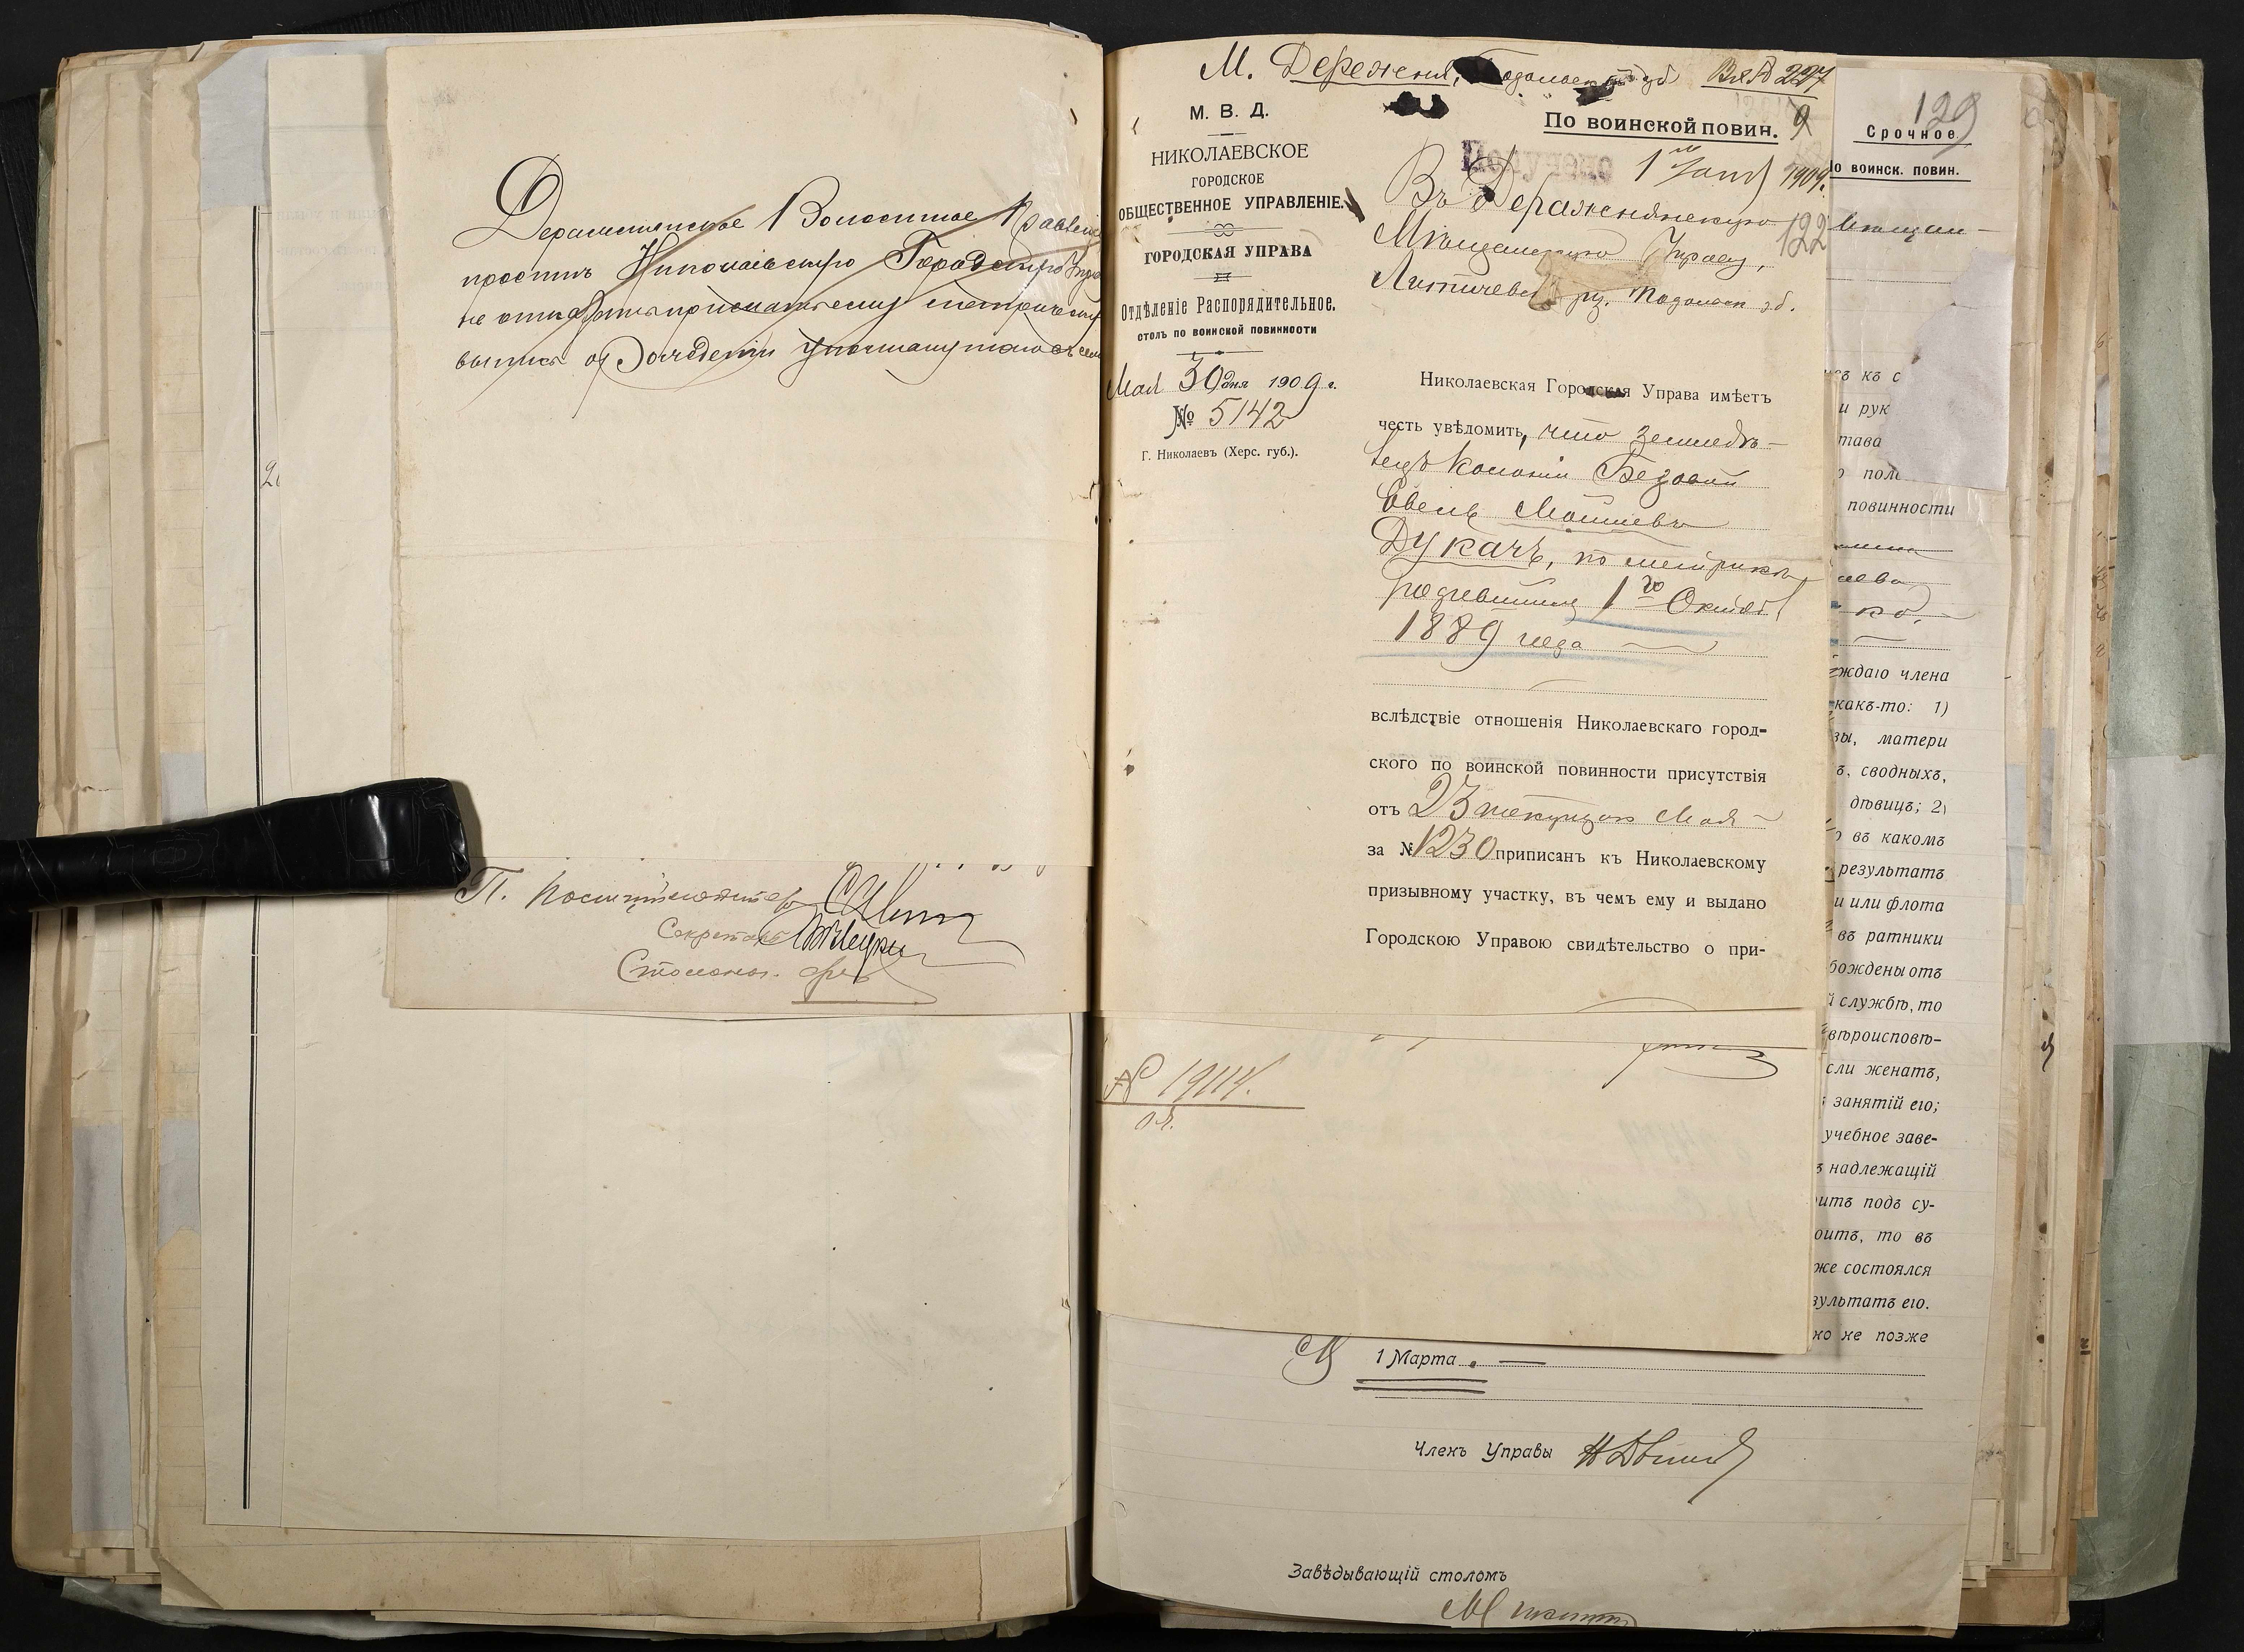 Деражнянское Волостное Правлені
проситъ Николаевскую Городскую Упр
не отказать прислать ему метрическую
выпись о рожденіи упомянутаго въ сем
П. Посиц
Секретарь
Столонач.
М. Дережня, Подольской губ Вх № 227
М. В. Д.
НИКОЛАЕВСКОЕ
ГОРОДСКОЕ
ОБЩЕСТВЕННОЕ УПРАВЛЕНІЕ.
ГОРОДСКАЯ УПРАВА
Отдѣленіе Распорядительное.
столъ по воинской повинности
Мая 30 дня 1909 г.
№ 5142
Г. Николаевъ (Херс. губ.).
По воинской повин. 9
Получено
1909.
Въ Деражнянскую
122
Мѣщанскую Управу,
Летичевск уѣз. Подольск гб.
Николаевская Городская Управа имѣетъ
честь увѣдомить, что землевлѣ-
лецъ колоніи Безовой
Евель Мошиевъ
Дукачъ, по метрикѣ
родившійся 1го Октяб
1889 года
вслѣдствіе отношенія Николаевскаго город-
ского по воинской повинности присутствія
отъ 23 текущаго Мая
за № 1230 приписанъ къ Николаевскому
призывному участку, въ чемъ ему и выдано
Городскою Управою свидѣтельство о при-
№ 19114.
129
Срочное
о воинск. повин.
Мѣщан-
къ с
и рук
тава
пол
повинности
ждаю члена
какъ-то: 1)
зы, матери
ъ, сводныхъ,
дѣвицъ; 2)
въ какомъ
результатъ
и или флота
въ ратники
бождены отъ
й службѣ, то
вѣроисповѣ-
сли женатъ,
занятій его;
учебное заве-
надлежащій
итъ подъ су-
оитъ, то въ
же состоялся
зультатъ его.
но не позже
1 Марта.
Членъ Управы
Завѣдывающій столомъ